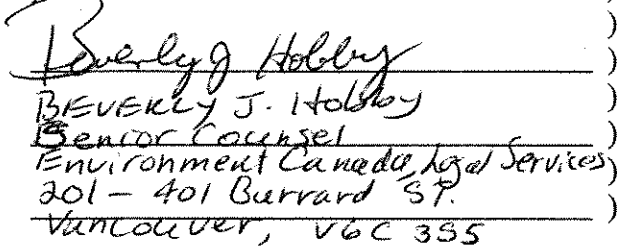 Beverly J Hobby )
BEVERLY J. Hobby )
Senior Counsel )
Environment Canada, Legal Services )
201 - 401 Burrard ST. )
Vancouver, V6C 3S5 )